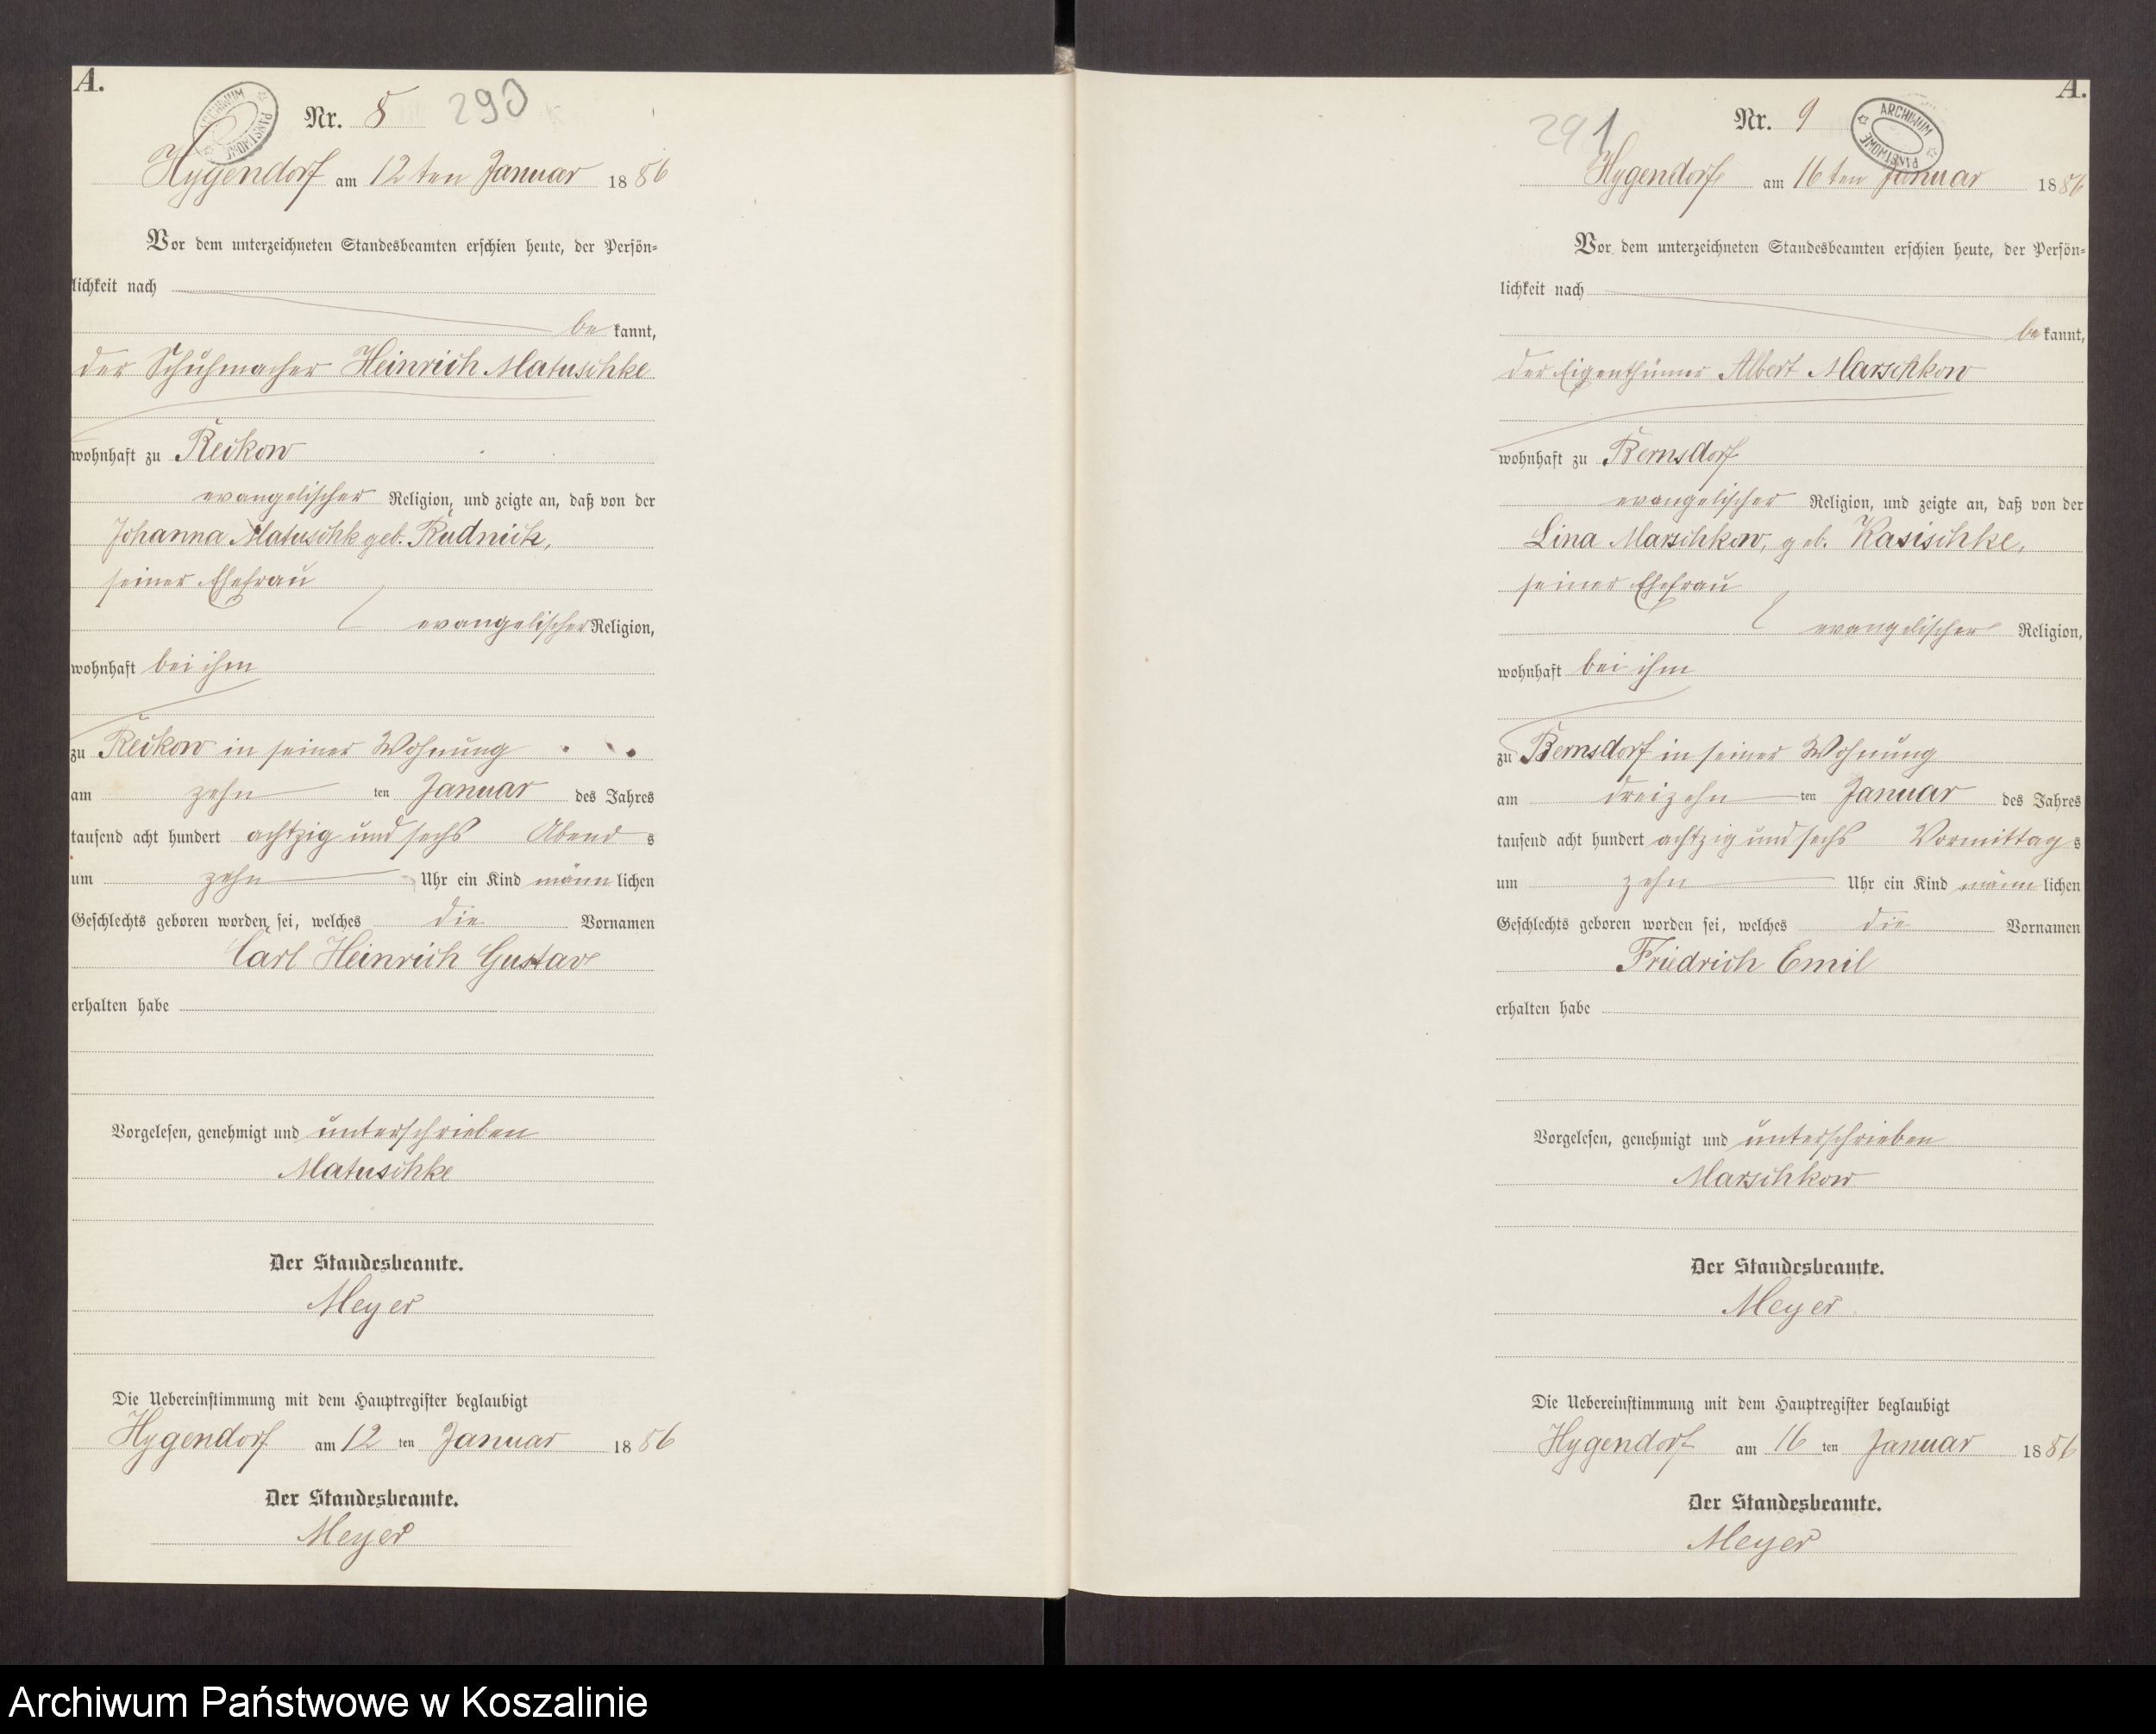 A.
ARCHIWUM PAŃSTWOWE
Nr. 8 290
Hygendorf am 12ten Januar 1886
Vor dem unterzeichneten Standesbeamten erschien heute, der Persön=
lichkeit nach
bekannt,
der Schuhmacher Heinrich Matuschke
wohnhaft zu Reckow
evangelischer Religion, und zeigte an, daß von der
Johanna Matuschk geb. Rudnick,
seiner Ehefrau
evangelischer Religion,
wohnhaft bei ihm
zu Reckow in seiner Wohnung
am zehn ten Januar des Jahres
tausend acht hundert achtzig und sechs Abend s
um zehn Uhr ein Kind männlichen
Geschlechts geboren worden sei, welches die Vornamen
Carl Heinrich Gustav
erhalten habe
Vorgelesen, genehmigt und unterschrieben
Matuschke
Der Standesbeamte.
Meyer
Die Uebereinstimmung mit dem Hauptregister beglaubigt
Hygendorf am 12 ten Januar 1886
Der Standesbeamte.
Meyer
A.
291 Nr. 9
ARCHIWUM PAŃSTWOWE
Hygendorf am 16ten Januar 1886
Vor dem unterzeichneten Standesbeamten erschien heute, der Persön=
lichkeit nach
bekannt,
der Eigenthümer Albert Marschkow
wohnhaft zu Bernsdorf
evangelischer Religion, und zeigte an, daß von der
Lina Marschkow, geb. Kasischke,
seiner Ehefrau
evangelischer Religion,
wohnhaft bei ihm
zu Bernsdorf in seiner Wohnung
am dreizehn ten Januar des Jahres
tausend acht hundert achtzig und sechs Vormittag s
um zehn Uhr ein Kind männlichen
Geschlechts geboren worden sei, welches die Vornamen
Friedrich Emil
erhalten habe
Vorgelesen, genehmigt und unterschrieben
Marschkow
Der Standesbeamte.
Meyer
Die Uebereinstimmung mit dem Hauptregister beglaubigt
Hygendorf am 16 ten Januar 1886
Der Standesbeamte.
Meyer
Archiwum Państwowe w Koszalinie